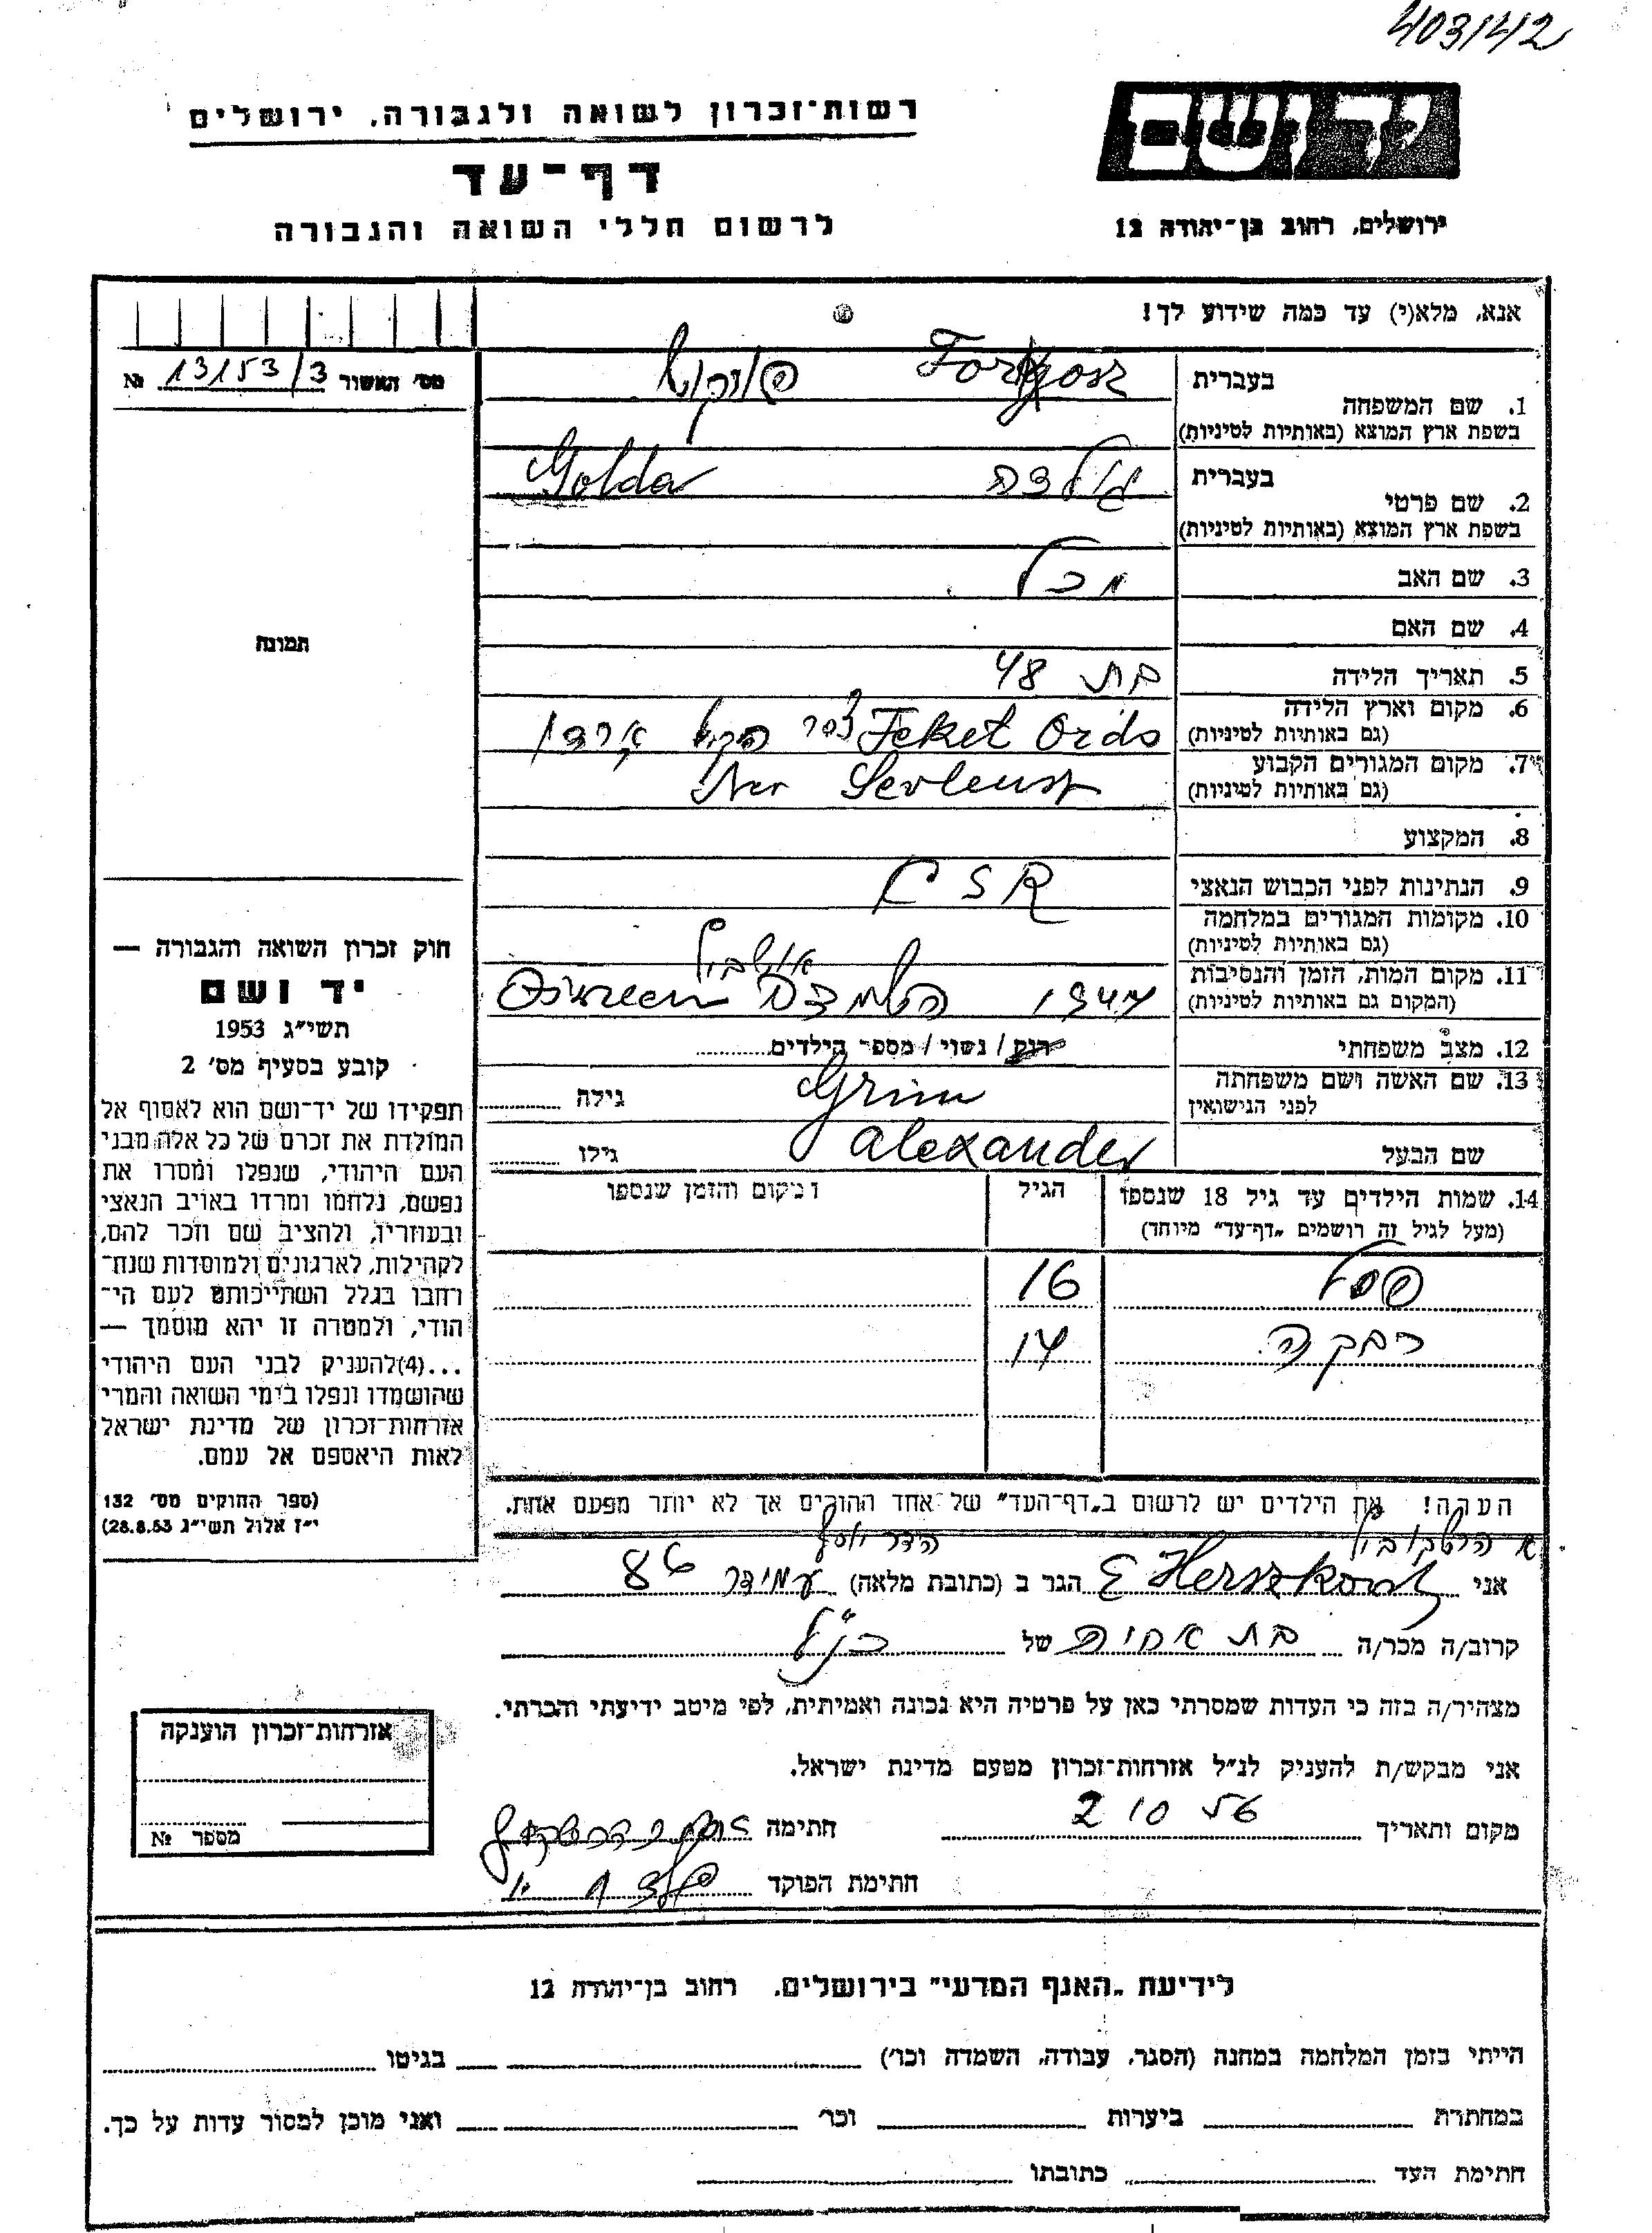 403142
רשות־זכרון לשואה ולגבורה, ירושלים
יד ושם
דף־עד
לרשום חללי השואה והגבורה
ירושלים, רחוב בן־יהודה 12
אנא, מלא(י) עד כמה שידוע לך!
מס׳ האשור 13153/3 №
תמונה
בעברית
1. שם המשפחה
בשפת ארץ המוצא (באותיות לטיניות)
בעברית גולדה Golda
2. שם פרטי
בשפת ארץ המוצא (באותיות לטיניות)
3. שם האב
4. שם האם
5. תאריך הלידה בת 48
6. מקום וארץ הלידה
(גם באותיות לטיניות) Feket Ordo
7. מקום המגורים הקבוע
(גם באותיות לטיניות)
8. המקצוע
9. הנתינות לפני הכבוש הנאצי CSR
10. מקומות המגורים במלחמה
(גם באותיות לטיניות)
11. מקום המות, הזמן והנסיבות
(המקום גם באותיות לטיניות) 1944 השמדה
12. מצב משפחתי רוק / נשוי / מספר הילדים
13. שם האשה ושם משפחתה
לפני הנישואין Grün גילה
שם הבעל Alexander גילו
14. שמות הילדים עד גיל 18 שנספו הגיל מקום והזמן שנספו
(מעל לגיל זה רושמים „דף־עד” מיוחד)
פסל 16
רבקה 14
הערה! את הילדים יש לרשום ב„דף־העד” של אחד ההורים אך לא יותר מפעם אחת.
חוק זכרון השואה והגבורה —
יד ושם
תשי״ג 1953
קובע בסעיף מס׳ 2
תפקידו של יד־ושם הוא לאסוף אל
המולדת את זכרם של כל אלה מבני
העם היהודי, שנפלו ומסרו את
נפשם, נלחמו ומרדו באויב הנאצי
ובעוזריו, ולהציב שם וזכר להם,
לקהילות, לארגונים ולמוסדות שנח־
רחבו בגלל השתייכותם לעם הי־
הודי, ולמטרה זו יהא מוסמך —
...(4)להעניק לבני העם היהודי
שהושמדו ונפלו בימי השואה והמרי
אזרחות־זכרון של מדינת ישראל
לאות היאספם אל עמם.
(ספר החוקים מס׳ 132
י״ז אלול תשי״ג 28.8.53)
אני הגר ב (כתובת מלאה) עמידר 86
קרוב/ה מכר/ה בת אחיה של כנ״ל
מצהיר/ה בזה כי העדות שמסרתי כאן על פרטיה היא נכונה ואמיתית, לפי מיטב ידיעתי והכרתי.
אני מבקש/ת להעניק לנ״ל אזרחות־זכרון מטעם מדינת ישראל.
מקום ותאריך 2 10 56 חתימה
חתימת הפוקד
אזרחות־זכרון הוענקה
מספר №
לידיעת „האגף המדעי” בירושלים, רחוב בן־יהודה 12
הייתי בזמן המלחמה במחנה (הסגר, עבודה, השמדה וכו׳) בגיטו
במחתרת ביערות וכו׳ ואני מוכן למסור עדות על כך.
חתימת העד כתובתו